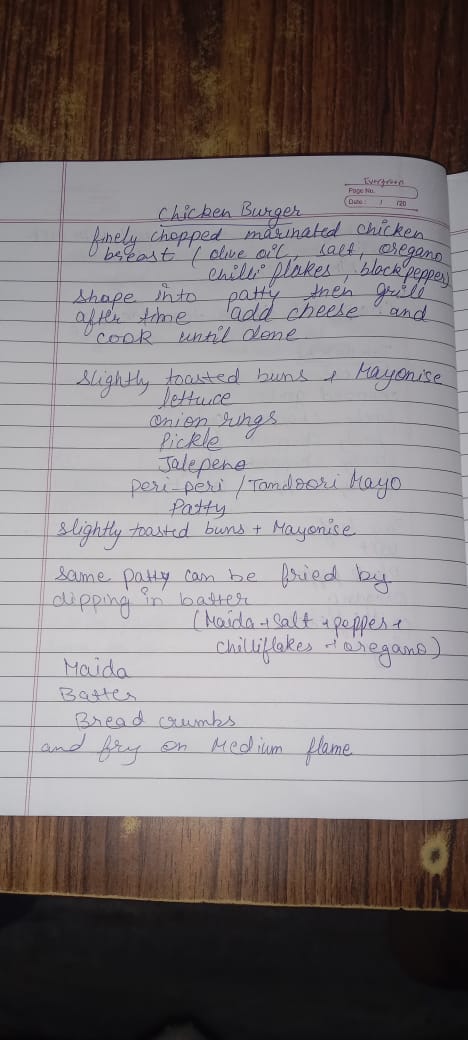 Evergreen
Page No.
Date: / /20
Chicken Burger
finely chopped marinated chicken
breast (olive oil, salt, oregano
chilli flakes, black pepper)
Shape into patty then grill
after time add cheese and
cook until done
Slightly toasted buns + Mayonise
lettuce
onion rings
Pickle
Jalepeno
Peri-peri / Tandoori Mayo
Patty
Slightly toasted buns + Mayonise
Same patty can be fried by
dipping in batter
(Maida + salt + pepper +
chilliflakes + oregano)
Maida
Batter
Bread crumbs
and fry on Medium flame